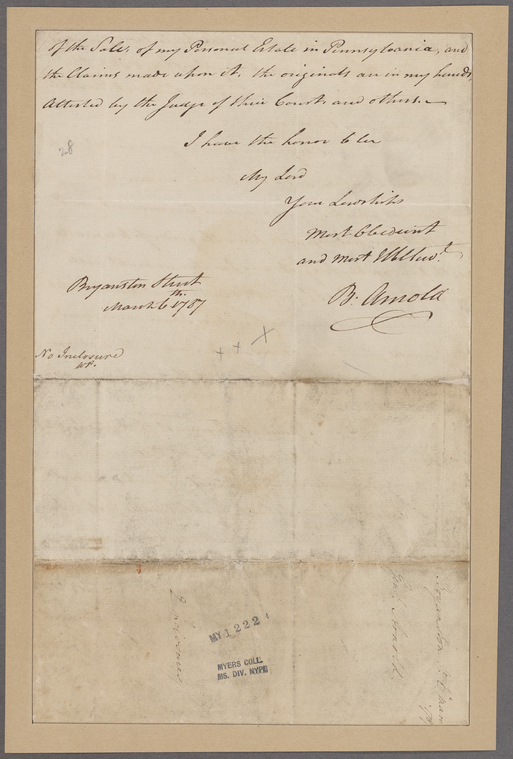 of the Sales of my Personal Estate in Pennsylvania, and
the Claims made upon it, the originals are in my hands,
Attested by the Judge of their Courts and others.
I have the honor to be
My Lord
Your Lordships
Most Obedient
and most Hble Servt.
B. Arnold
Bryanston Street
March 6th 1787
28
No Inclosure
MY 1222
MYERS COLL.
MS. DIV. NYPL
Arnold